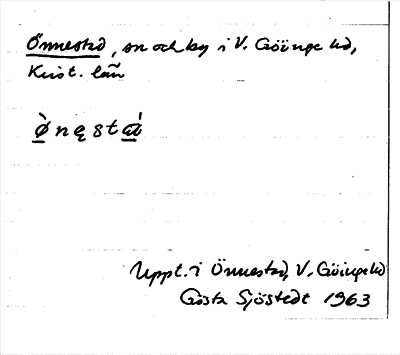 Önnestad, sn och by i V. Göinge hd,
Krist. län
ø̀nęstá
Uppt. i Önnestad, V. Göingehd
Gösta Sjöstedt 1963